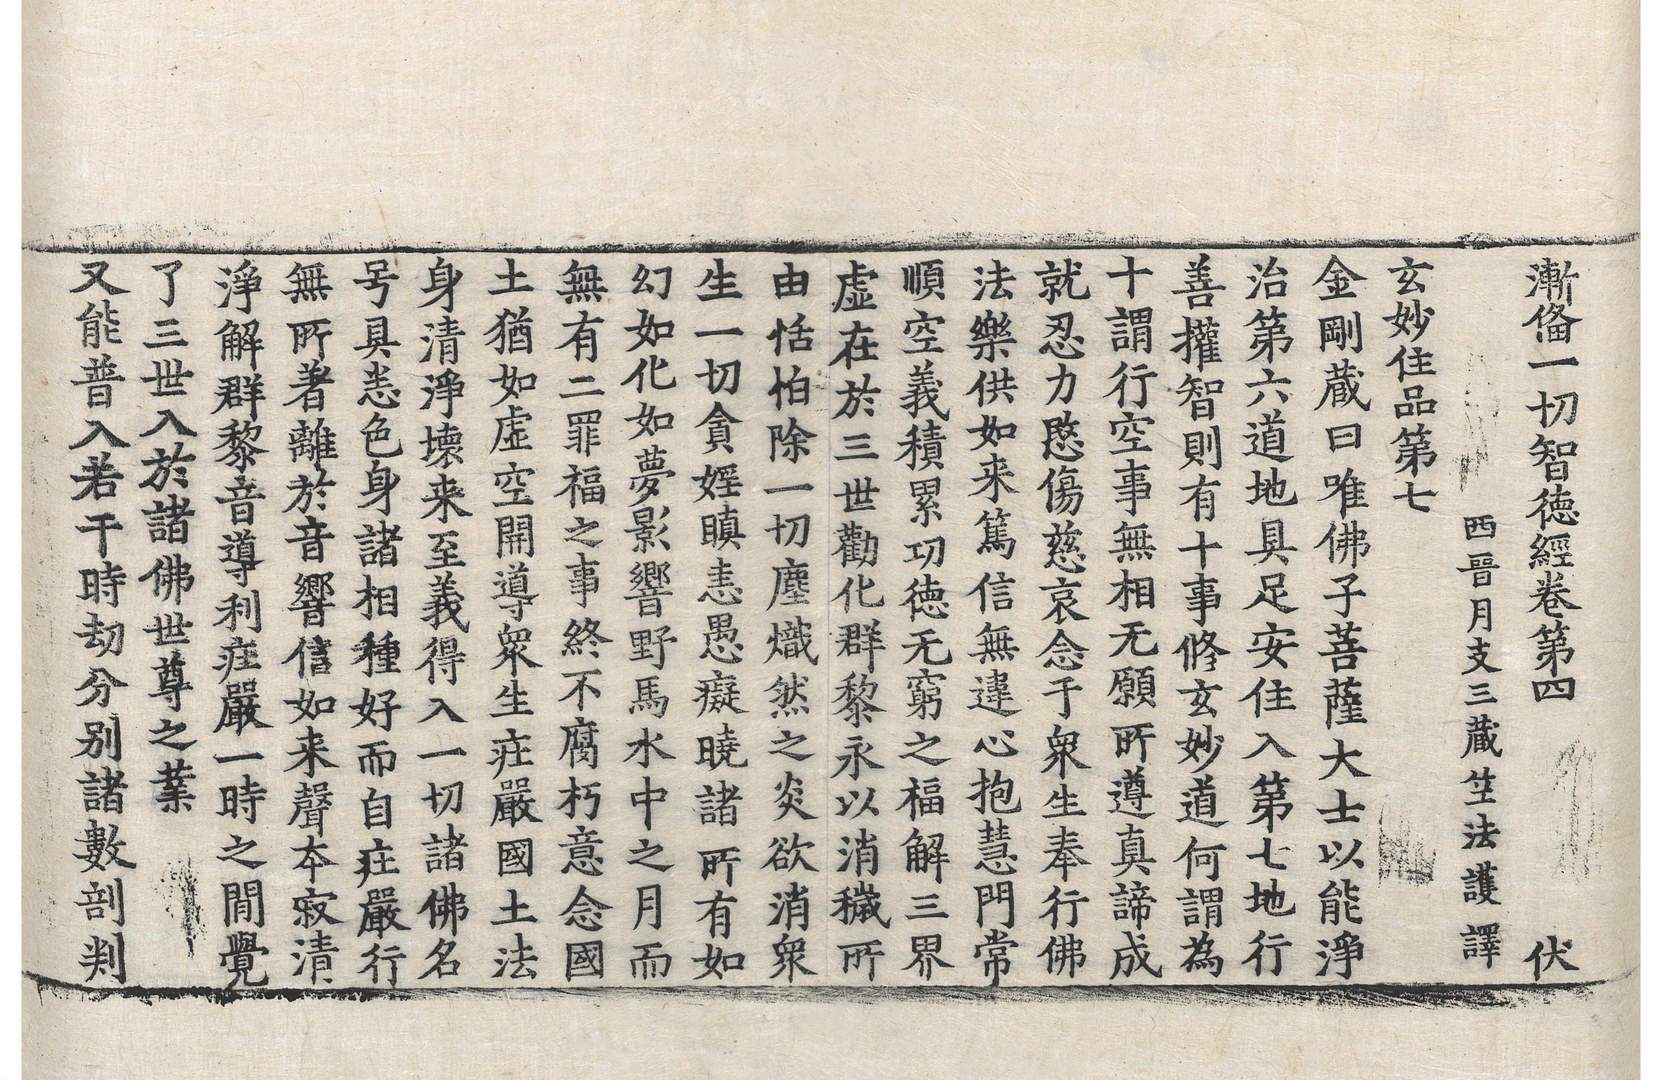 漸俻一切智德經卷第四 伏
西晉月支三藏竺法護譯
玄妙住品第七
金剛藏曰唯佛子菩薩大士以能淨
治第六道地具足安住入第七地行
善權智則有十事修玄妙道何謂為
十謂行空事無相无願所遵真諦成
就忍力愍傷慈哀念于衆生奉行佛
法樂供如来篤信無違心抱慧門常
順空義積累功德无窮之福解三界
虛在於三世勸化群黎永以消穢所
由恬怕除一切塵熾然之炎欲消衆
生一切貪婬瞋恚愚癡曉諸所有如
幻如化如夢影響野馬水中之月而
無有二罪福之事終不腐朽意念國
土猶如虛空開導衆生庄嚴國土法
身清淨壞来至義得入一切諸佛名
号具恙色身諸相種好而自庄嚴行
無所著離於音響信如来聲夲寂清
淨解群黎音導利庄嚴一時之間覺
了三世入於諸佛世尊之業
又能普入若干時劫分别諸數剖判